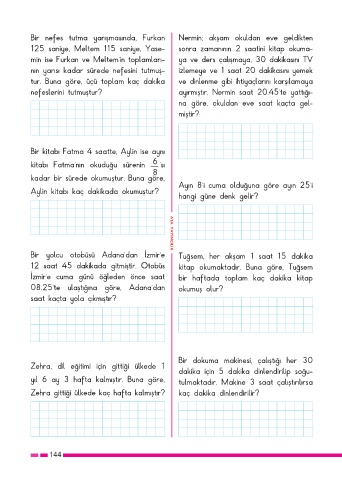 Bir nefes tutma yarışmasında, Furkan
125 saniye, Meltem 115 saniye, Yase-
min ise Furkan ve Meltem'in toplamları-
nın yarısı kadar sürede nefesini tutmuş-
tur. Buna göre, üçü toplam kaç dakika
nefeslerini tutmuştur?
Bir kitabı Fatma 4 saatte, Aylin ise aynı
kitabı Fatma'nın okuduğu sürenin 6/8 sı
kadar bir sürede okumuştur. Buna göre,
Aylin kitabı kaç dakikada okumuştur?
Bir yolcu otobüsü Adana'dan İzmir'e
12 saat 45 dakikada gitmiştir. Otobüs
İzmir'e cuma günü öğleden önce saat
08.25'te ulaştığına göre, Adana'dan
saat kaçta yola çıkmıştır?
Zehra, dil eğitimi için gittiği ülkede 1
yıl 6 ay 3 hafta kalmıştır. Buna göre,
Zehra gittiği ülkede kaç hafta kalmıştır?
Nermin; akşam okuldan eve geldikten
sonra zamanının 2 saatini kitap okuma-
ya ve ders çalışmaya, 30 dakikasını TV
izlemeye ve 1 saat 20 dakikasını yemek
ve dinlenme gibi ihtiyaçlarını karşılamaya
ayırmıştır. Nermin saat 20.45'te yattığı-
na göre, okuldan eve saat kaçta gel-
miştir?
Ayın 8'i cuma olduğuna göre ayın 25'i
hangi güne denk gelir?
Tuğsem, her akşam 1 saat 15 dakika
kitap okumaktadır. Buna göre, Tuğsem
bir haftada toplam kaç dakika kitap
okumuş olur?
Bir dokuma makinesi, çalıştığı her 30
dakika için 5 dakika dinlendirilip soğu-
tulmaktadır. Makine 3 saat çalıştırılırsa
kaç dakika dinlendirilir?
144